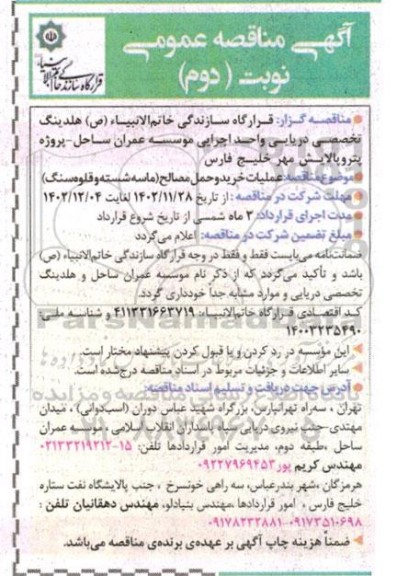 آگهی مناقصه عمومی
نوبت (دوم)
قرارگاه سازندگی خاتم الانبیاء
مناقصه گزار: قرارگاه سازندگی خاتم‌الانبیاء (ص) هلدینگ
تخصصی دریایی واحد اجرایی موسسه عمران ساحل-پروژه
پتروپالایش مهر خلیج فارس
موضوع مناقصه: عملیات خرید و حمل مصالح (ماسه شسته و قلوه سنگ)
مهلت شرکت در مناقصه: از تاریخ ۱۴۰۲/۱۱/۲۸ لغایت ۱۴۰۲/۱۲/۰۴
مدت اجرای قرارداد: ۳ ماه شمسی از تاریخ شروع قرارداد
مبلغ تضمین شرکت در مناقصه: اعلام می‌گردد
ضمانت‌نامه می‌بایست فقط و فقط در وجه قرارگاه سازندگی خاتم‌الانبیاء (ص)
باشد و تأکید می‌گردد که از ذکر نام موسسه عمران ساحل و هلدینگ
تخصصی دریایی و موارد مشابه جداً خودداری گردد.
کد اقتصادی قرارگاه خاتم‌الانبیاء: ۴۱۱۳۳۱۶۶۳۷۱۹ و شناسه ملی
۱۴۰۰۳۲۳۵۴۹۰
این مؤسسه در رد کردن و یا قبول کردن پیشنهاد مختار است.
سایر اطلاعات و جزئیات مربوط در اسناد مناقصه درج شده است.
آدرس جهت دریافت و تسلیم اسناد مناقصه:
تهران ، سه‌راه تهرانپارس، بزرگراه شهید عباس دوران (اسب‌دوانی) ، میدان
مهتدی-جنب نیروی دریایی سپاه پاسداران انقلاب اسلامی ، موسسه عمران
ساحل ،طبقه دوم، مدیریت امور قراردادها تلفن: ۱۵-۰۲۱۳۳۲۱۹۲۱۲
مهندس کریم پور ۰۹۲۲۷۹۶۹۴۵۳
هرمزگان ،شهر بندرعباس، سه راهی خونسرخ ، جنب پالایشگاه نفت ستاره
خلیج فارس ، امور قراردادها ،مهندس بنیادلو، مهندس دهقانیان تلفن :
۰۹۱۷۳۵۱۰۶۹۸-۰۹۱۷۸۲۳۲۸۸۱
ضمناً هزینه چاپ آگهی بر عهده‌ی برنده‌ی مناقصه می‌باشد.